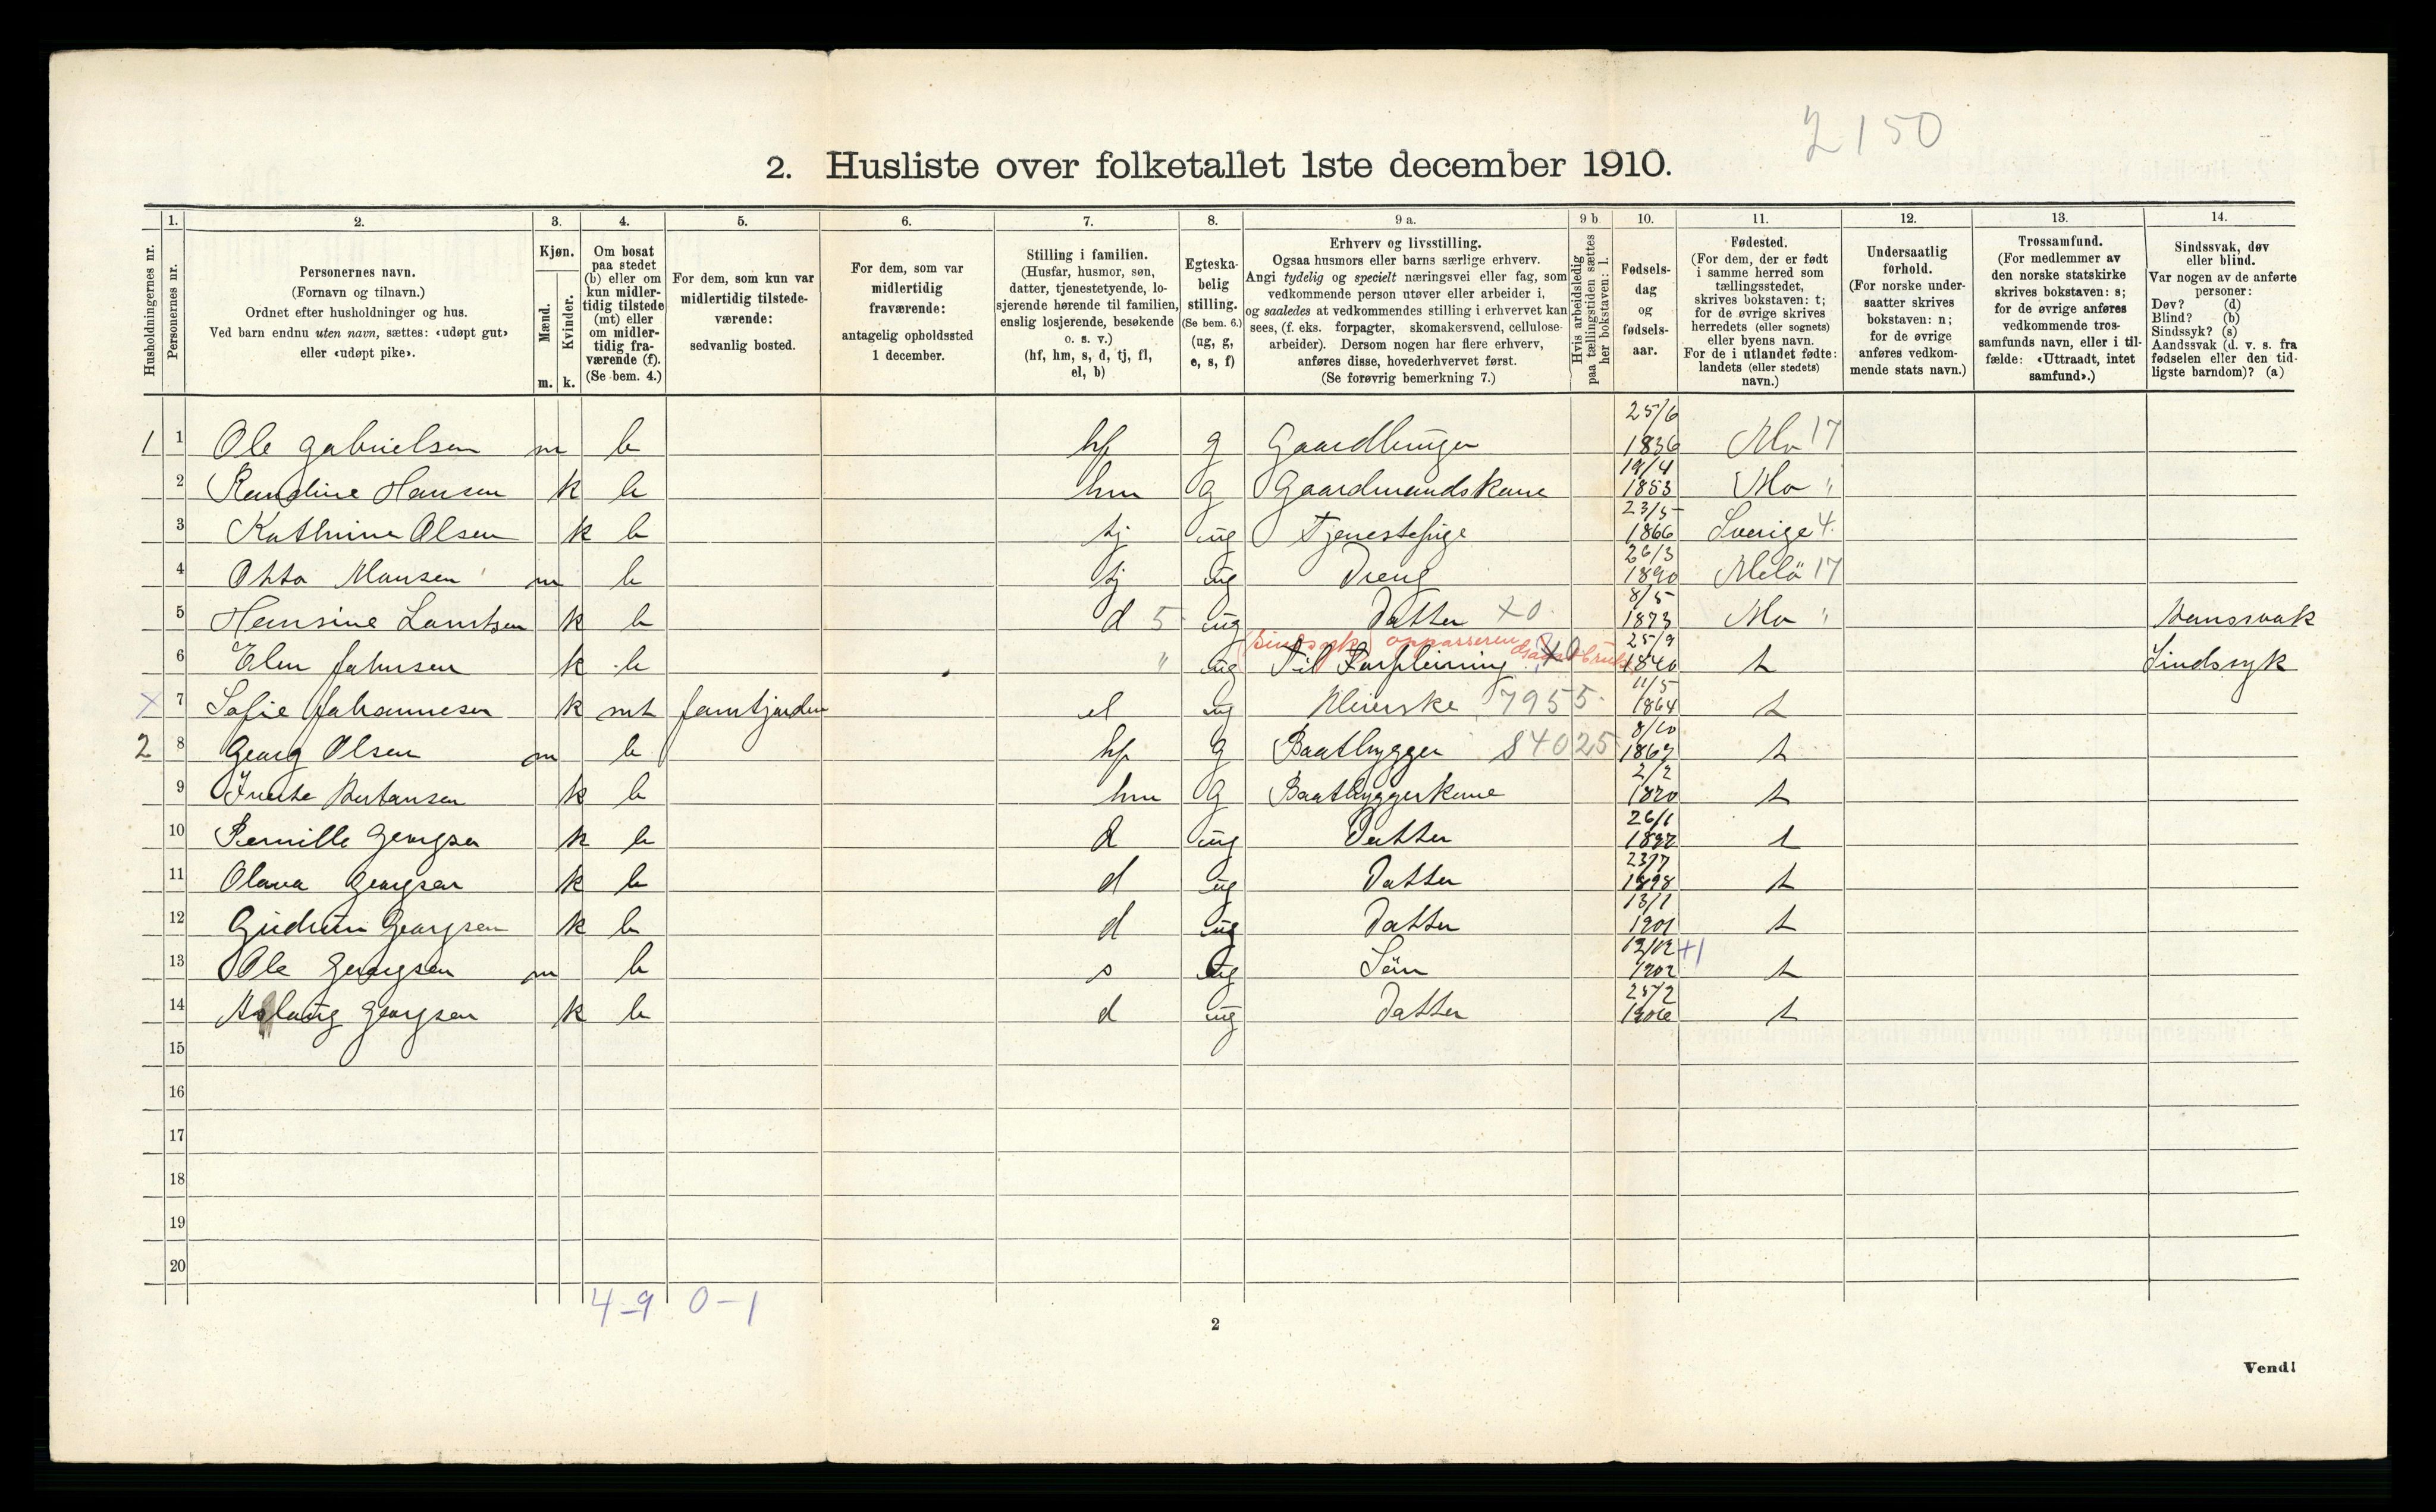 2150
2. Husliste over folketallet 1ste december 1910.
Husholdningernes nr.
1. Personernes nr.
2. Personernes navn. (Fornavn og tilnavn.) Ordnet efter husholdninger og hus. Ved barn endnu uten navn, sættes: «udøpt gut» eller «udøpt pike».
3. Kjøn. Mænd. m. Kvinder. k.
4. Om bosat paa stedet (b) eller om kun midlertidig tilstede (mt) eller om midlertidig fraværende (f). (Se bem. 4.)
5. For dem, som kun var midlertidig tilstedeværende: sedvanlig bosted.
6. For dem, som var midlertidig fraværende: antagelig opholdssted 1 december.
7. Stilling i familien. (Husfar, husmor, søn, datter, tjenestetyende, losjerende hørende til familien, enslig losjerende, besøkende o. s. v.) (hf, hm, s, d, tj, fl, el, b)
8. Egteskabelig stilling. (Se bem. 6.) (ug, g, e, s, f)
9 a. Erhverv og livsstilling. Ogsaa husmors eller barns særlige erhverv. Angi tydelig og specielt næringsvei eller fag, som vedkommende person utøver eller arbeider i, og saaledes at vedkommendes stilling i erhvervet kan sees, (f. eks. forpagter, skomakersvend, cellulosearbeider). Dersom nogen har flere erhverv, anføres disse, hovederhvervet først. (Se forøvrig bemerkning 7.)
9 b Hvis arbeidsledig paa tællingstiden sættes her bokstaven: l.
10. Fødselsdag og fødselsaar.
11. Fødested. (For dem, der er født i samme herred som tællingsstedet, skrives bokstaven: t; for de øvrige skrives herredets (eller sognets) eller byens navn. For de i utlandet fødte: landets (eller stedets) navn.)
12. Undersaatlig forhold. (For norske undersaatter skrives bokstaven: n; for de øvrige anføres vedkommende stats navn.)
13. Trossamfund. (For medlemmer av den norske statskirke skrives bokstaven: s; for de øvrige anføres vedkommende trossamfunds navn, eller i tilfælde: «Uttraadt, intet samfund».)
14. Sindssvak, døv eller blind. Var nogen av de anførte personer: Døv? (d) Blind? (b) Sindssyk? (s) Aandssvak (d. v. s. fra fødselen eller den tidligste barndom)? (a)
1 1 Ole Gabrielsen m b hf g Gaardbruger 25/6 1836 Mo 17
2 Randine Hansen k b hm g Gaardmandskone 19/4 1853 Mo "
3 Kathrine Olsen k b tj ug Tjenestepige 23/5 1866 Sverige 4.
4 Otto Mausen m b tj ug Dreng 26/3 1890 Melö 17
5 Hansine k b d 5 ug Datter x0. 8/5 1873 Mo "
6 Elen Johnsen k b " ug Til 25/9 1840 t Sindssyk
x 7 Sofie Johannesen k mt el ug Meierske 7955. 11/5 1864 t
2 8 Georg Olsen m b hf g Baatbygger 84025 8/10 t
9 k b hm g Baatbyggerkone 2/2 t
10 Pernille Georgsen k b d ug Datter 26/1 t
11 Olava Georgsen k b d ug Datter 23/7 1898 t
12 Gudrun Georgsen k b d ug Datter 13/1 1901 t
13 Ole Georgsen m b s ug Sön 1902 +1 t
14 Aslaug Georgsen k b d ug Datter 25/2 1906 t
15
16
17
18
19
20
4-9 0-1
2
Vend!